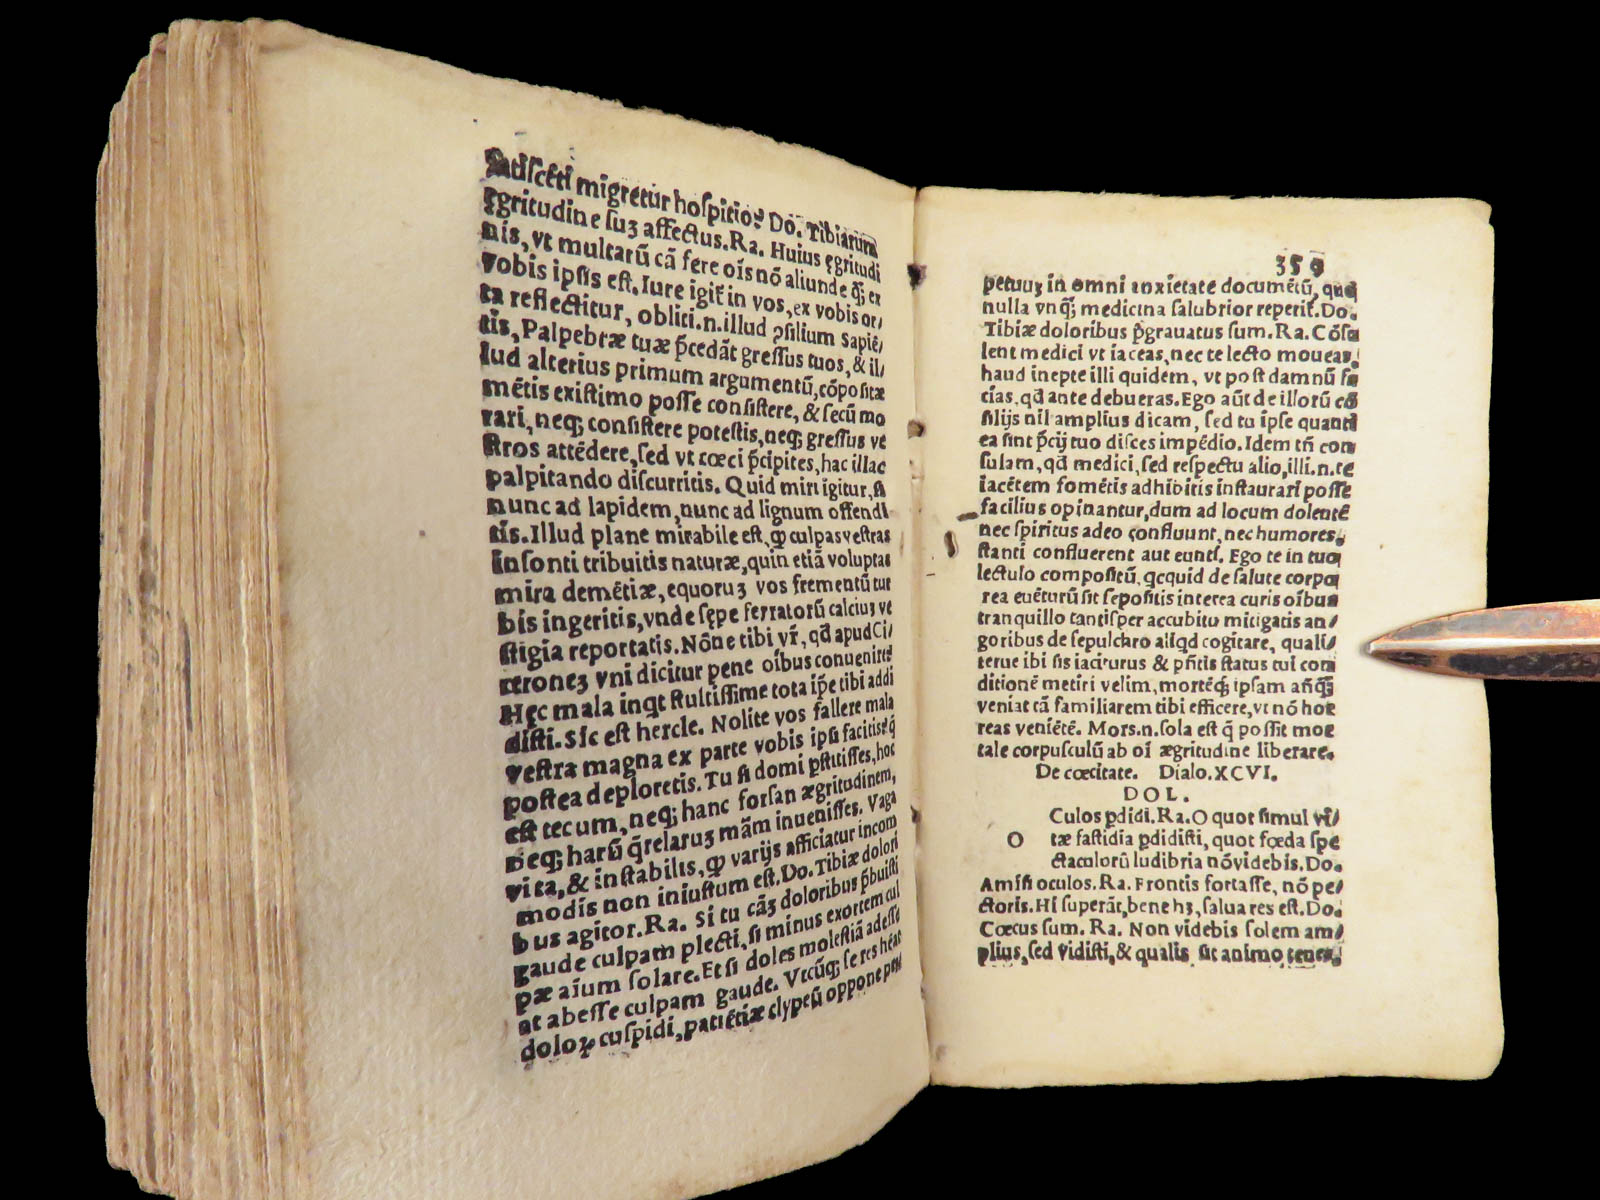 migretur hoſpitio? Do. Tibiarum
ęgritudine ſuꝫ affectus. Ra. Huius ęgritudi
nis, vt multarũ cã fere oĩs nõ aliunde ꝙ̃; ex
vobis ipſis eſt. Iure igit̃ in vos, ex vobis or/
ta reflectitur, obliti .n. illud ꝯſilium Sapiẽ/
tis, Palpebræ tuæ p̃cedãt greſſus tuos, & il/
lud alterius primum argumentũ, cõpoſitæ
mẽtis exiſtimo poſſe conſiſtere, & ſecũ mo
rari, neq; conſiſtere poteſtis, neq; greſſus ve
ſtros attẽdere, ſed vt cœci p̃cipites, hac illac
palpitando diſcurritis. Quid miri igitur, ſi
nunc ad lapidem, nunc ad lignum offendi
tis. Illud plane mirabile eſt, ꝙ culpas veſtras
inſonti tribuitis naturæ, quin etiã voluptas
mira demẽtiæ, equoruꝫ vos frementũ tur
bis ingeritis, vnde ſępe ferratorũ calciuꝫ ve
ſtigia reportatis. Nõne tibi vr̃, qđ apud Ci/
ceroneꝫ vni dicitur pene oĩbus conuenire?
Hęc mala inqt ſtultiſſime tota ip̃e tibi addi
diſti. Sic eſt hercle. Nolite vos fallere mala
veſtra magna ex parte vobis ipſi facitis, q̃
poſtea deploretis. Tu ſi domi p̱ſtitiſſes, hoc
eſt tecum, neq; hanc forſan ægritudinem,
neq; harũ q̃relaruꝫ mãm inueniſſes. Vaga
vita, & inſtabilis, ꝙ varijs afficiatur incom
modis non iniuſtum eſt. Do. Tibiæ dolori
bus agitor. Ra. Si tu cãꝫ doloribus p̃buiſti
gaude culpam plecti, ſi minus exortem cul
pæ aĩum ſolare. Et ſi doles moleſtiã adeſſe
at abeſſe culpam gaude. Vtcũq; ſe res hẽat
doloꝝ cuſpidi, patiẽtiæ clypeũ oppone
359
petuuꝫ in omni anxietate documẽtũ, quo
nulla vnq̃; medicina ſalubrior reperit̃. Do.
Tibiæ doloribus p̃grauatus ſum. Ra. Cõſu
lent medici vt iaceas, nec te lecto moueas,
haud inepte illi quidem, vt poſt damnũ fa
cias, qđ ante debueras. Ego aũt de illorũ cõ
ſilijs nil amplius dicam, ſed tu ipſe quanti
ea ſint p̃cij tuo diſces impẽdio. Idem tñ con
ſulam, qđ medici, ſed reſpectu alio, illi .n. te
iacẽtem fomẽtis adhibitis inſtaurari poſſe
facilius opinantur, dum ad locum dolentẽ
nec ſpiritus adeo confluunt, nec humores,
ſtanti confluerent aut eunti. Ego te in tuo
lectulo compoſitũ, qcquid de ſalute corpo
rea euẽturũ ſit ſepoſitis interea curis oĩbus
tranquillo tantiſper accubitu mitigatis an/
goribus de ſepulchro aliqđ cogitare, quali/
terue ibi ſis iaciturus & pñtis ſtatus tui con
ditionẽ metiri velim, mortẽq; ipſam añq̃;
veniat tã familiarem tibi efficere, vt nõ hor
reas veniẽtẽ. Mors .n. ſola eſt q̃ poſſit mor
tale corpuſculũ ab oĩ ægritudine liberare.
De cœcitate. Dialo. XCVI.
DOL.
O Culos ꝑdidi. Ra. O quot ſimul vi/
tæ faſtidia ꝑdidiſti, quot fœda ſpe
ctaculorũ ludibria nõ videbis. Do.
Amiſi oculos. Ra. Frontis fortaſſe, nõ pe/
ctoris. Hi ſuperãt, bene hꝫ, ſalua res eſt. Do.
Cœcus ſum. Ra. Non videbis ſolem am/
plius, ſed vidiſti, & qualis ſit animo tenes,